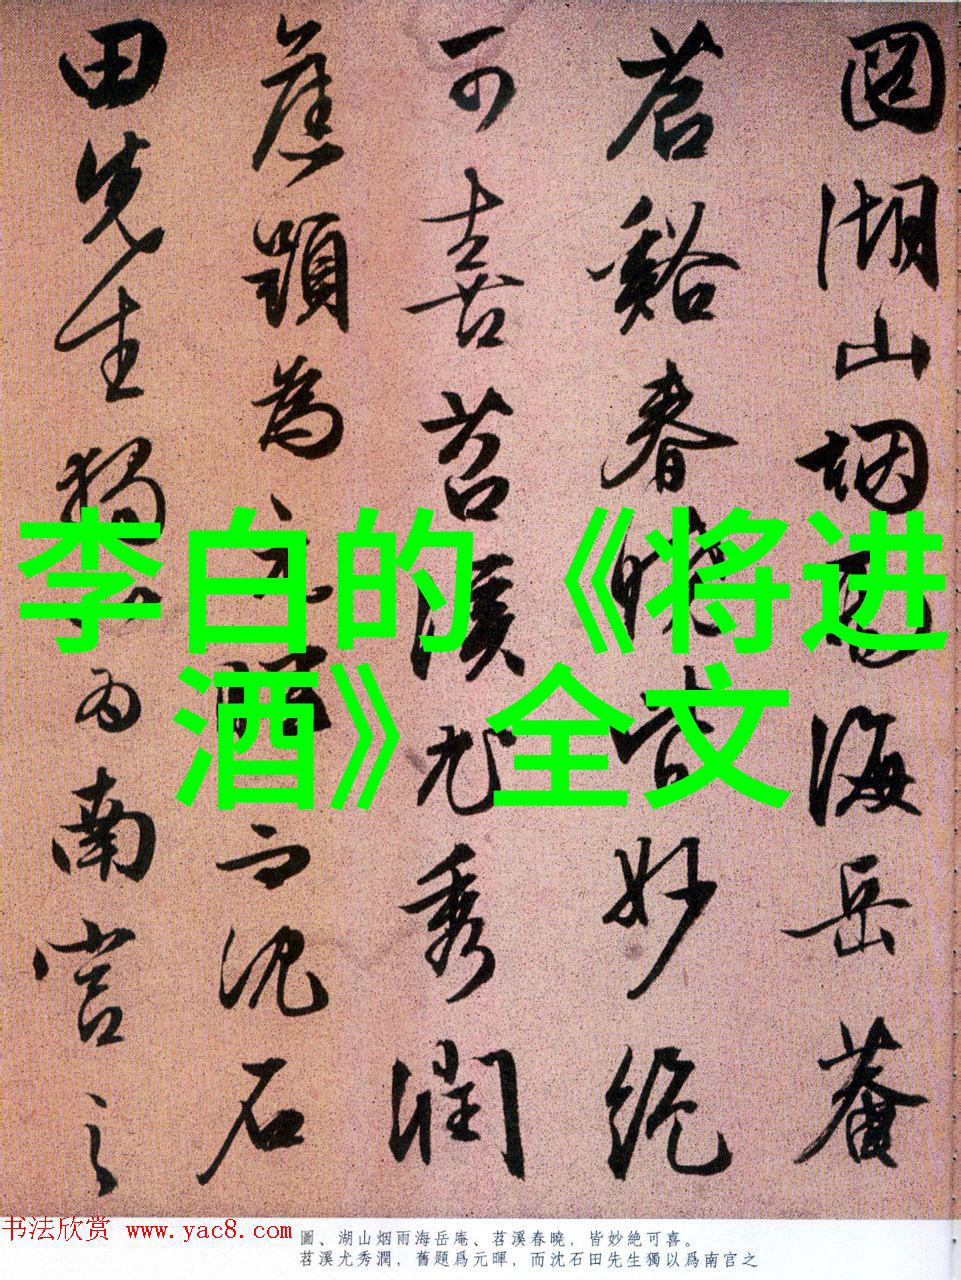 圖湖山烟雨海岳菴
苕谿春曉皆妙絶
可喜苕溪尤秀潤
舊題為元暉而沈石
田先生獨以為南宫之
李白的《将进
酒》全文
書法欣赏 www.yac8.com
圖、湖山烟雨海岳庵、苕溪春曉，皆妙絶可喜。
苕溪尤秀潤，舊題爲元暉，而沈石田先生獨以爲南宫之